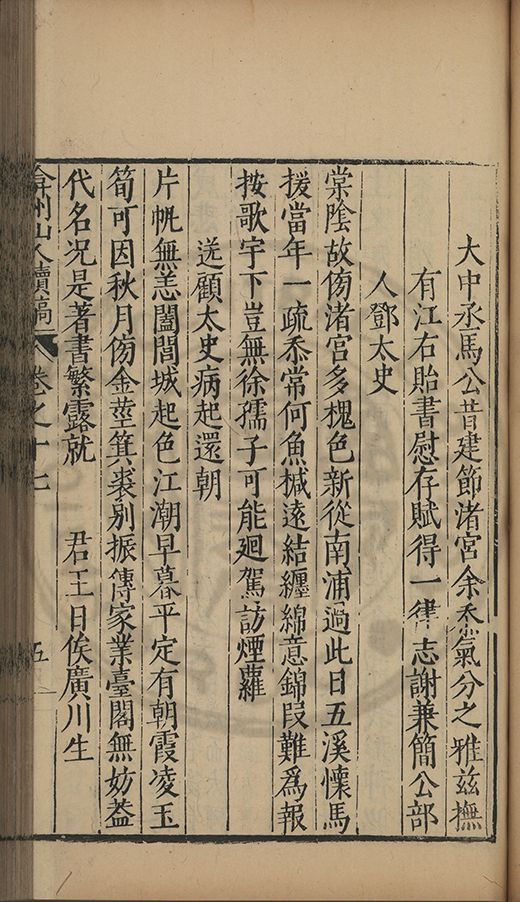 大中丞馬公昔建節渚宮余忝氣分之雅茲撫
有江右貽書慰存賦得一律志謝兼簡公部
人鄧太史
棠陰故傍渚宮多槐色新從南浦過此日五溪懷馬
援當年一疏忝常何魚椷遠結纏綿意錦段難為報
按歌宇下豈無徐孺子可能迴駕訪煙蘿
送顧太史病起還朝
片帆無恙闔閭城起色江潮早暮平定有朝霞凌玉
筍可因秋月傍金莖箕裘別振傳家業臺閣無妨蓋
代名况是著書繁露就 君王日俟廣川生
弇州山人續稿 卷之十七 五